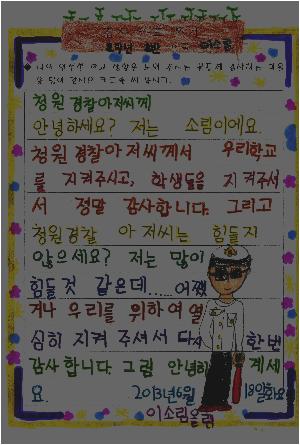 이소림
청원경찰아저씨께
안녕하세요? 저는 소림이에요.
청원경찰아저씨께서 우리학교
를 지켜주시고, 학생들을 지켜주셔
서 정말 감사합니다. 그리고
청원경찰 아저씨는 힘들지
않으세요? 저는 많이
힘들것 같은데..... 어쨌
거나 우리를 위하여 열
심히 지켜 주셔서 다시 한번
감사합니다. 그럼 안녕히 계세
요. 2013년6월 18일화요일
이소림올림